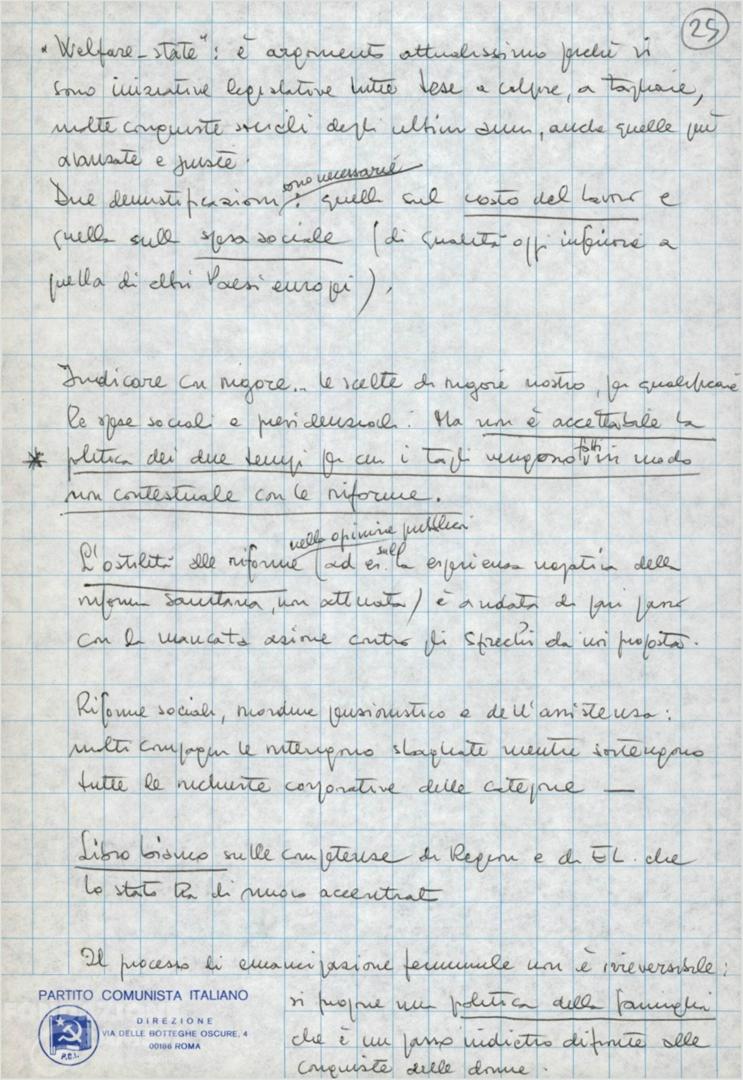 25
"Welfare-state": è argomento attualissimo perché vi
sono iniziative legislative tutte tese a colpire, a tagliare,
molte conquiste sociali degli ultimi anni, anche quelle più
avanzate e giuste.
Due demistificazioni sono necessarie: quella sul costo del lavoro e
quella sulla spesa sociale (di qualità oggi inferiore a
quella di altri Paesi europei).
Indicare con rigore.. le scelte di rigore nostro, per qualificare
le spese sociali e previdenziali. Ma non è accettabile la
* politica dei due tempi per cui i tagli vengono fatti in modo
non contestuale con le riforme.
L'ostilità alle riforme nella opinione pubblica (ad es. sulla esperienza negativa della
riforma sanitaria, non attuata) è andata di pari passo
con la mancata azione contro gli sprechi da noi proposta.
Riforme sociali, riordino pensionistico e dell'assistenza:
molti compagni le ritengono sbagliate mentre sostengono
tutte le richieste corporative delle categorie —
Libro bianco sulle competenze di Regioni e di EL. che
lo stato ha di nuovo accentrato
Il processo di emancipazione femminile non è irreversibile:
si propone una politica della famiglia
che è un passo indietro di fronte alle
conquiste delle donne.
PARTITO COMUNISTA ITALIANO
DIREZIONE
VIA DELLE BOTTEGHE OSCURE, 4
00186 ROMA
P.C.I.